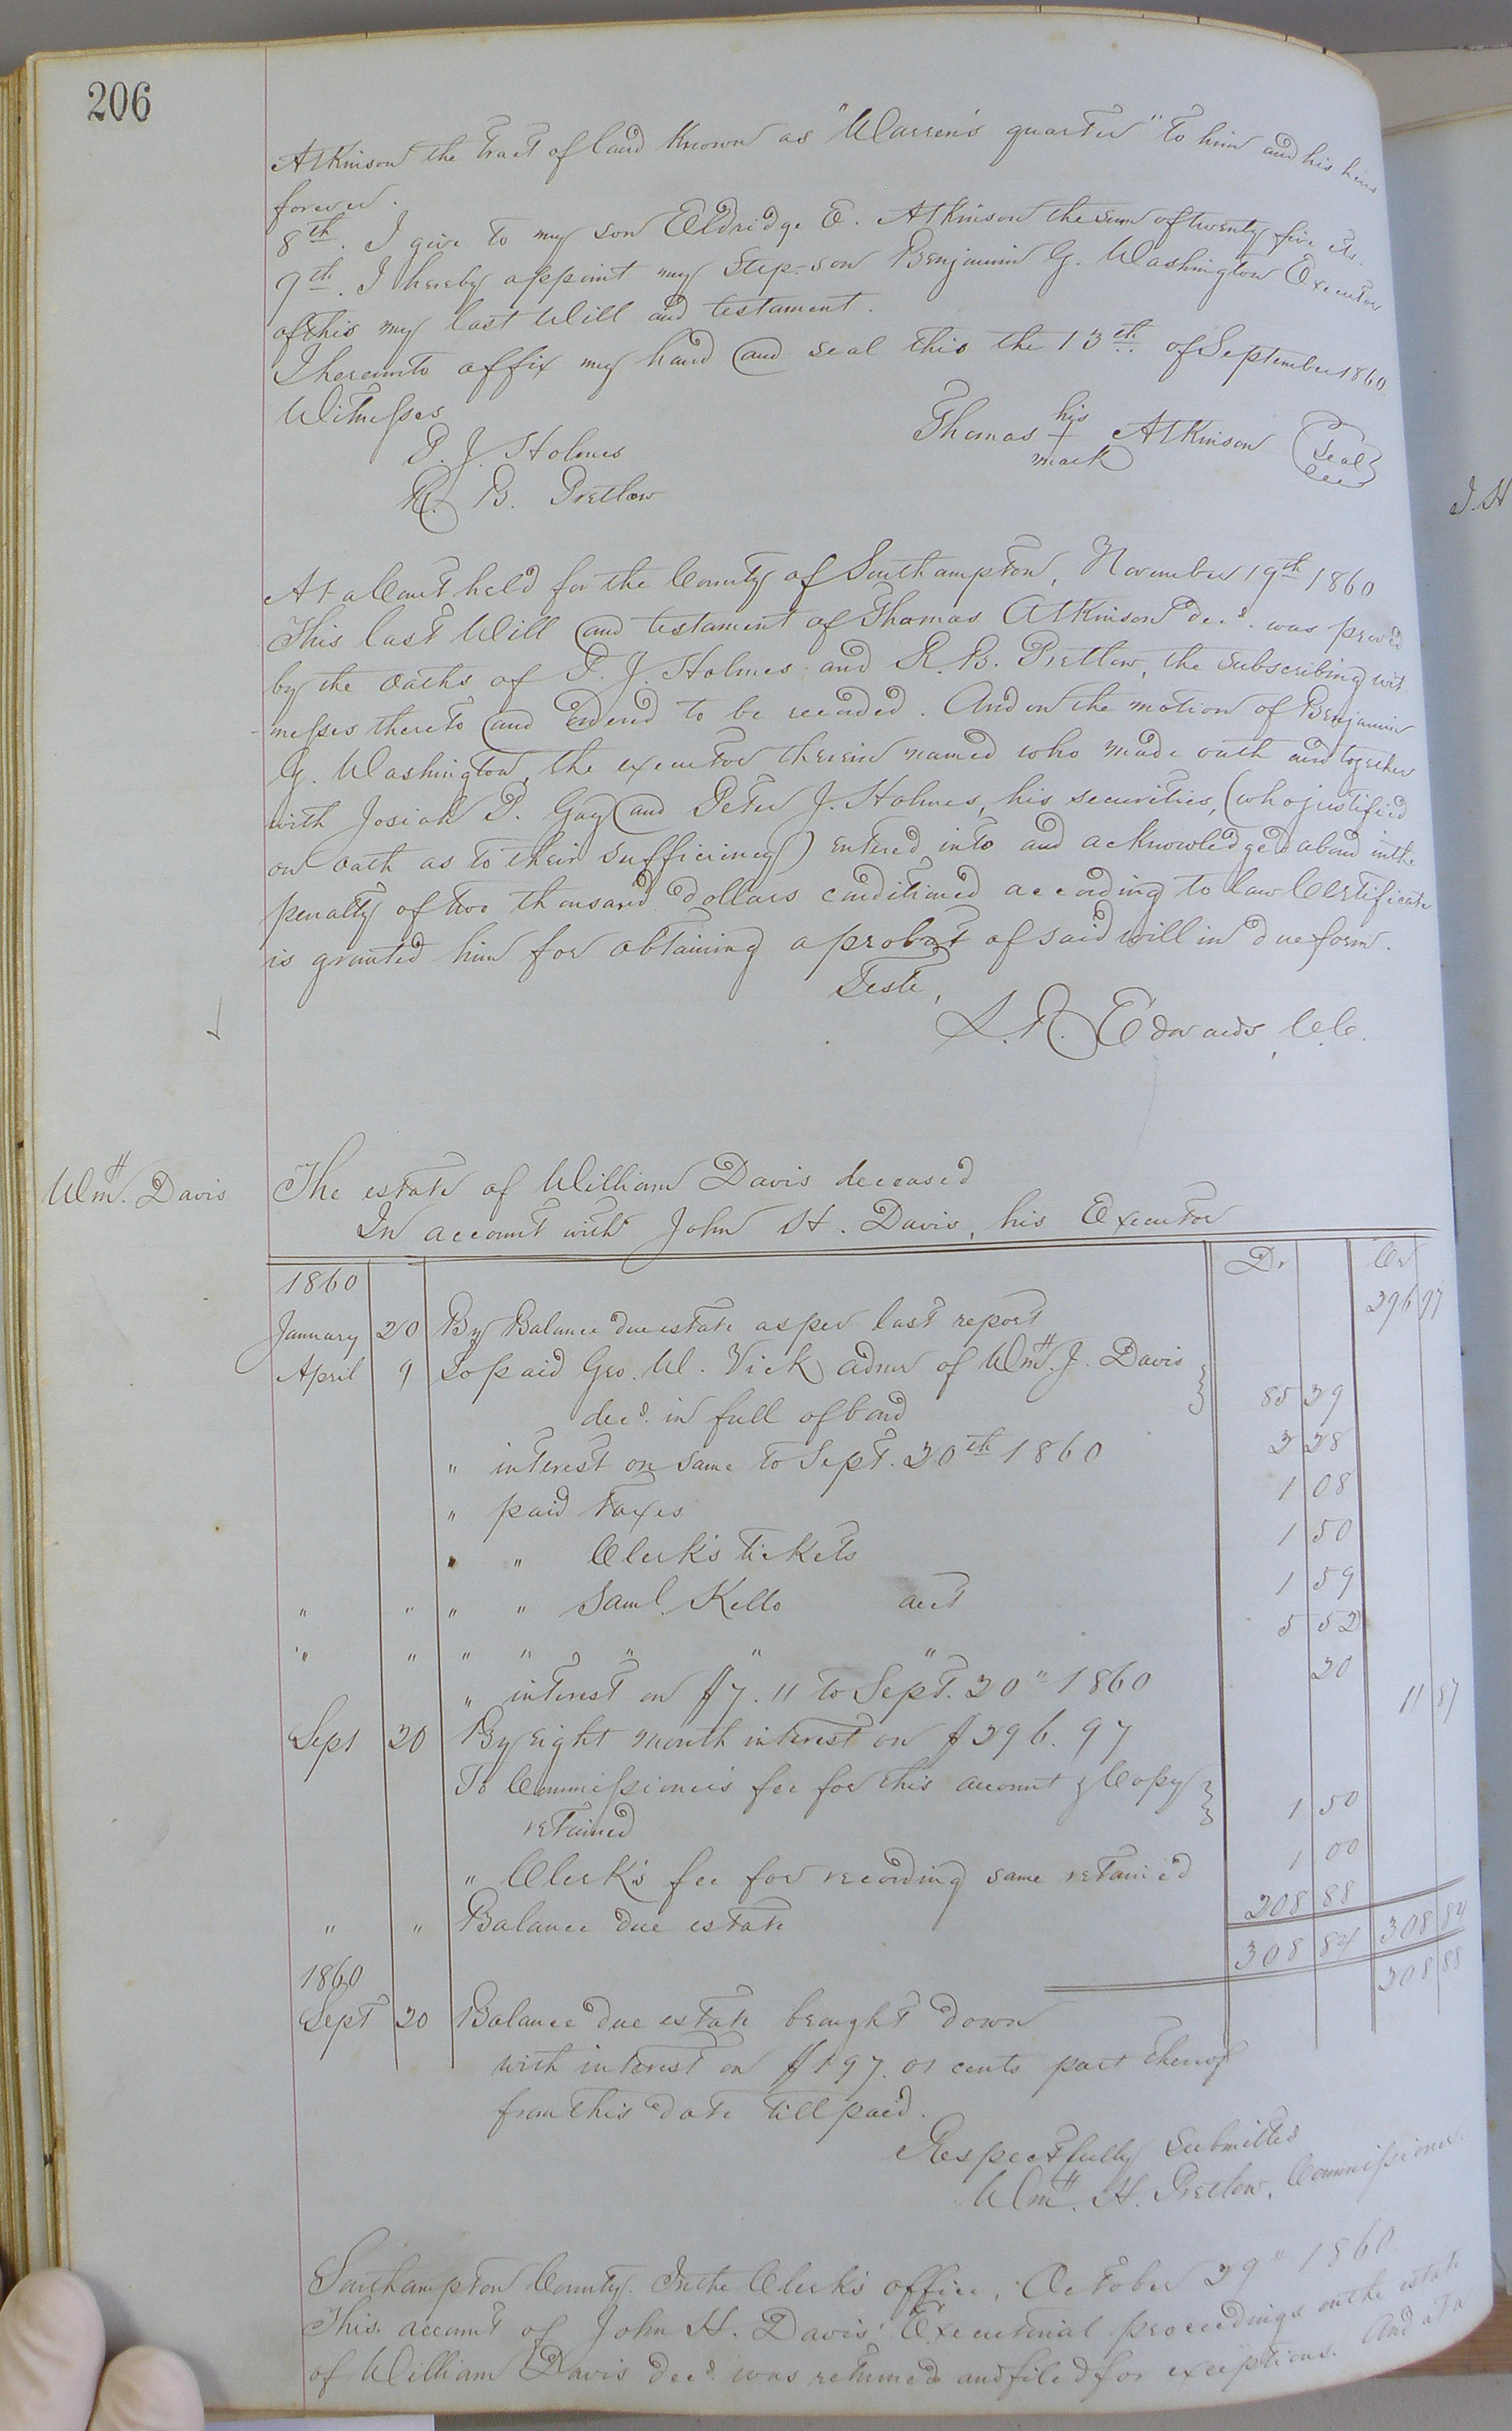 206
Atkinson the tract of land Known as "Warren's quarter" to him and his heirs
forever.
8th. I give to my son Eldridge E. Atkinson the sum of twenty five cts.
9th. I hereby appoint my Step-son Benjamin G. Washington Executor
of this my last Will and testament.
I hereunto affix my hand and seal this the 13th. of September 1860.
Witnesses
P. J. Holmes
R. B. Pretlow
his
Thomas + Atkinson (Seal)
mark
At a Court held for the County of Southampton, November 19th 1860
This last Will and testament of Thomas Atkinson decd. was proved
by the oaths of P. J. Holmes and R. B. Pretlow, the subscribing wit-
nesses thereto and ordered to be recorded. And on the motion of Benjamin
G. Washington, the executor therein named who made oath and together
with Josiah P. Gay and Peter J. Holmes, his securities, (who justified
on oath as to their sufficiency) entered into and acknowledged a bond in the
penalty of two thousand dollars conditioned according to law Certificate
is granted him for obtaining a probat of said will in due form.
Teste,
L. R. Edwards, C.C.
Wm. Davis
The estate of William Davis deceased
In account with John H. Davis, his Executor
1860 Dr Cr
January 20 By Balance due estate as per last report 296 97
April 9 To paid Geo. W. Vick admr of Wm. J. Davis
decd. in full of bond 85 29
" interest on same to Sept. 20th 1860 2 28
" paid Taxes 1 08
" " Clerk's tickets 1 50
" " " " Saml. Kello acct 1 59
" " " " " " " 5 52
" interest on $7.11 to Sept. 20" 1860 20
Sept 20 By eight month interest on $296.97 11 87
To Commissioner's fee for this account & Copy
retained 1 50
" Clerk's fee for recording same retained 1 00
" " Balance due estate 208 88
308 84 308 84
1860
Sept 20 Balance due estate brought down 208 88
with interest on $197.01 cents part thereof
from this date till paid.
Respectfully Submitted
Wm. H. Pretlow, Commissioner.
Southampton County. In the Clerk's office, October 29" 1860.
This account of John H. Davis' Executorial proceedings on the estate
of William Davis decd. was returned and filed for exceptions. And at a
J. H